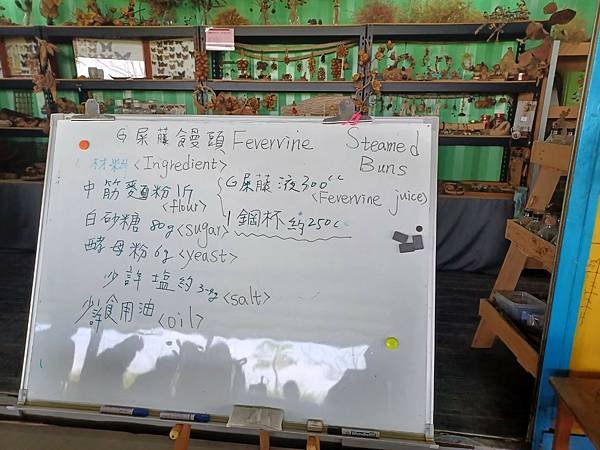 G屎藤饅頭 Fevervine Steamed Buns
材料 <Ingredient>
中筋麵粉 1斤 <flour>
G屎藤液 300cc
<Fevervine juice>
1鋼杯約250cc
白砂糖 80g <sugar>
酵母粉 6g <yeast>
少許塩約 3-8g <salt>
少許食用油 <oil>